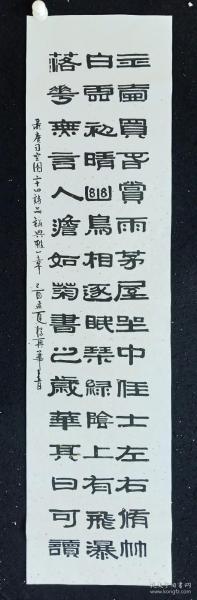 玉壺買春賞雨茅屋坐中佳士左右脩竹
白雲初晴幽鳥相逐眠琴綠陰上有飛瀑
落花無言人澹如菊書之歲華其曰可讀
录唐司空图二十四诗品 典雅一章